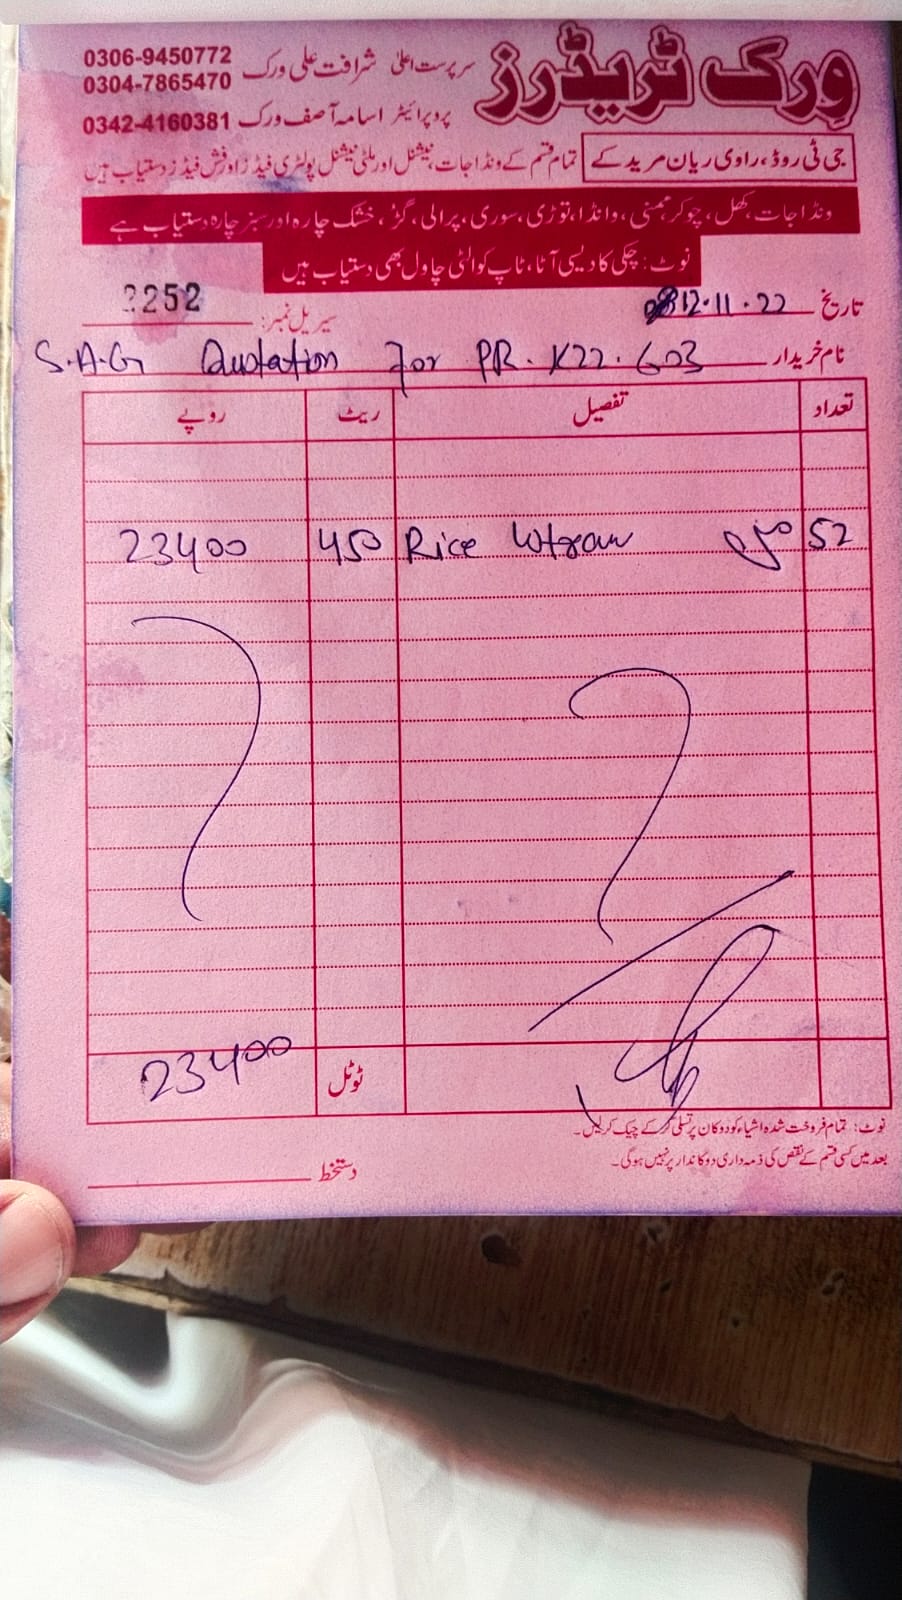 ورک ٹریڈرز
سرپرست اعلیٰ شرافت علی ورک 0306-9450772
0304-7865470
پروپرائیٹر اسامہ آصف ورک 0342-4160381
جی ٹی روڈ، راوی ریان مریدکے
تمام قسم کے ونڈا جات، نیشنل اور ملٹی نیشنل پولٹری فیڈز اور فش فیڈز دستیاب ہیں
ونڈا جات، کھل، چوکر، ممنی، وانڈا، توڑی، سوری، پرالی، گڑ، خشک چارہ اور سبز چارہ دستیاب ہے
نوٹ: چکی کا دیسی آٹا، ٹاپ کوالٹی چاول بھی دستیاب ہیں
تاریخ 12.11.22
سیریل نمبر: 2252
نام خریدار S.A.G Quotation for PR. K22.603
تعداد تفصیل ریٹ روپے
52 Rice 450 23400
ٹوٹل 23400
نوٹ: تمام فروخت شدہ اشیاء کو دوکان پر تسلی کر کے چیک کر لیں۔
بعد میں کسی قسم کے نقص کی ذمہ داری دوکاندار پر نہیں ہوگی۔
دستخط